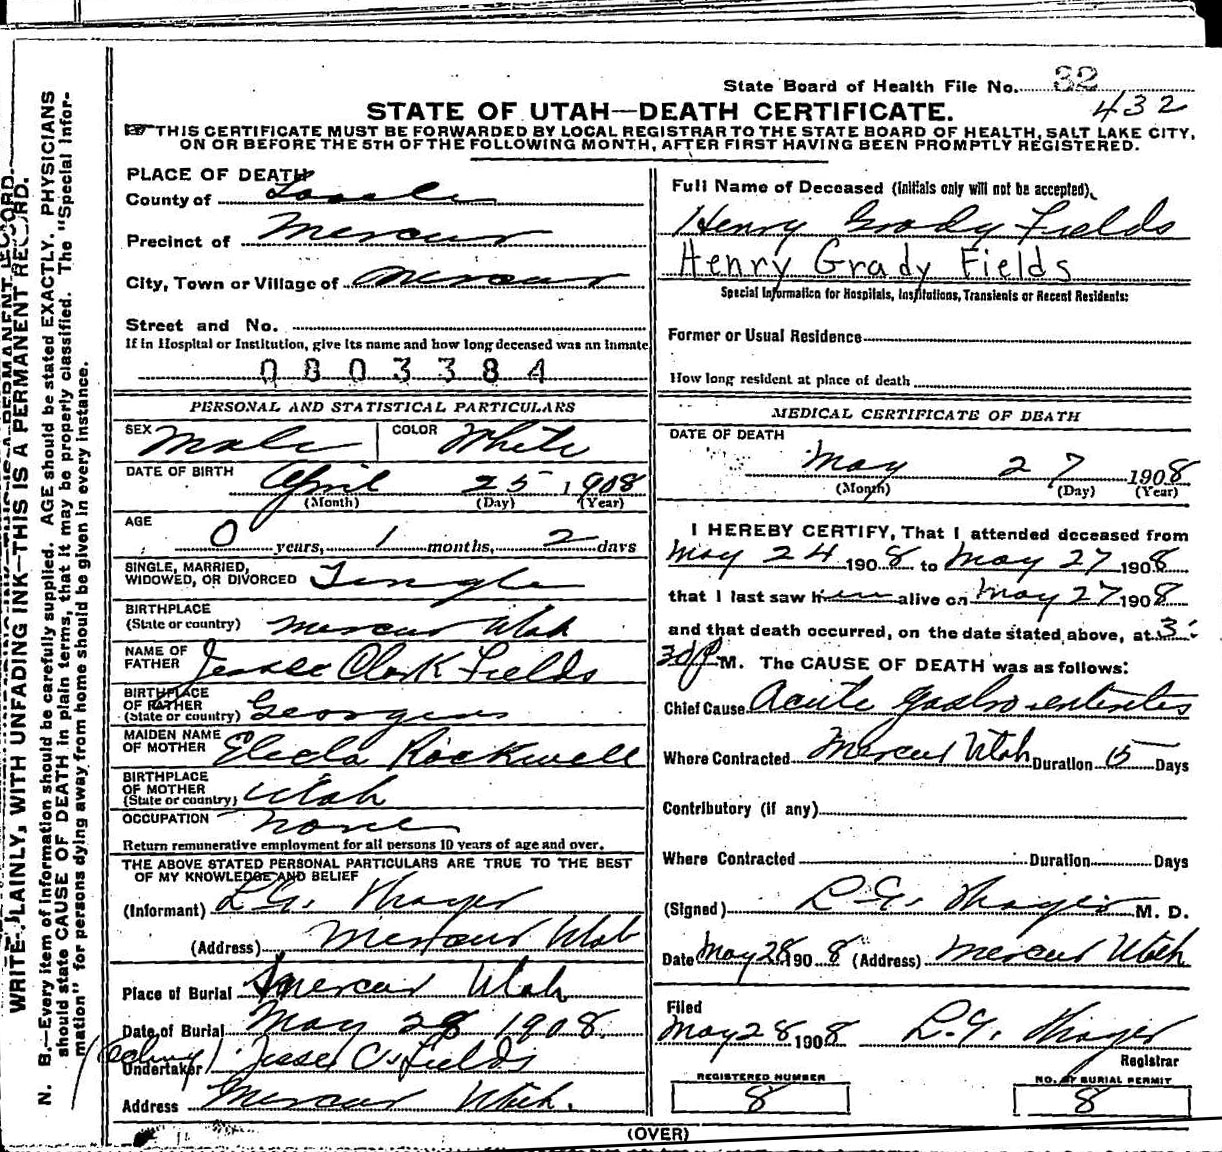 State Board of Health File No. 32
432
STATE OF UTAH—DEATH CERTIFICATE.
THIS CERTIFICATE MUST BE FORWARDED BY LOCAL REGISTRAR TO THE STATE BOARD OF HEALTH, SALT LAKE CITY,
ON OR BEFORE THE 5TH OF THE FOLLOWING MONTH, AFTER FIRST HAVING BEEN PROMPTLY REGISTERED.
WRITE PLAINLY, WITH UNFADING INK—THIS IS A PERMANENT RECORD.
N. B.—Every item of information should be carefully supplied. AGE should be stated EXACTLY. PHYSICIANS
should state CAUSE OF DEATH in plain terms, that it may be properly classified. The "Special Infor-
mation" for persons dying away from home should be given in every instance.
PLACE OF DEATH
County of Tooele
Precinct of Mercur
City, Town or Village of Mercur
Street and No.
If in Hospital or Institution, give its name and how long deceased was an inmate
0803384
PERSONAL AND STATISTICAL PARTICULARS
SEX Male COLOR White
DATE OF BIRTH April 25 1908
(Month) (Day) (Year)
AGE
0 years, 1 months, 2 days
SINGLE, MARRIED,
WIDOWED, OR DIVORCED Single
BIRTHPLACE
(State or country) Mercur Utah
NAME OF
FATHER Jesse Clark Fields
BIRTHPLACE
OF FATHER
(State or country) Georgia
MAIDEN NAME
OF MOTHER Elecla Rockwell
BIRTHPLACE
OF MOTHER
(State or country) Utah
OCCUPATION None
Return remunerative employment for all persons 10 years of age and over.
THE ABOVE STATED PERSONAL PARTICULARS ARE TRUE TO THE BEST
OF MY KNOWLEDGE AND BELIEF
(Informant) L.G. Thayer
(Address) Mercur Utah
Place of Burial Mercur Utah
Date of Burial May 28 1908.
(Acting) Undertaker Jesse C. Fields
Address Mercur Utah.
Full Name of Deceased (Initials only will not be accepted).
Henry Grady Fields
Henry Grady Fields
Special Information for Hospitals, Institutions, Transients or Recent Residents:
Former or Usual Residence
How long resident at place of death
MEDICAL CERTIFICATE OF DEATH
DATE OF DEATH
May 27 1908
(Month) (Day) (Year)
I HEREBY CERTIFY, That I attended deceased from
May 24 1908 to May 27 1908
that I last saw him alive on May 27 1908
and that death occurred, on the date stated above, at 3:
30 P M. The CAUSE OF DEATH was as follows:
Chief Cause Acute Gastro enteritis
Where Contracted Mercur Utah Duration 15 Days
Contributory (if any)
Where Contracted Duration Days
(Signed) L.G. Thayer M. D.
Date May 28 1908 (Address) Mercur Utah
Filed
May 28 1908 L.G. Thayer
Registrar
REGISTERED NUMBER
8
NO. OF BURIAL PERMIT
8
(OVER)